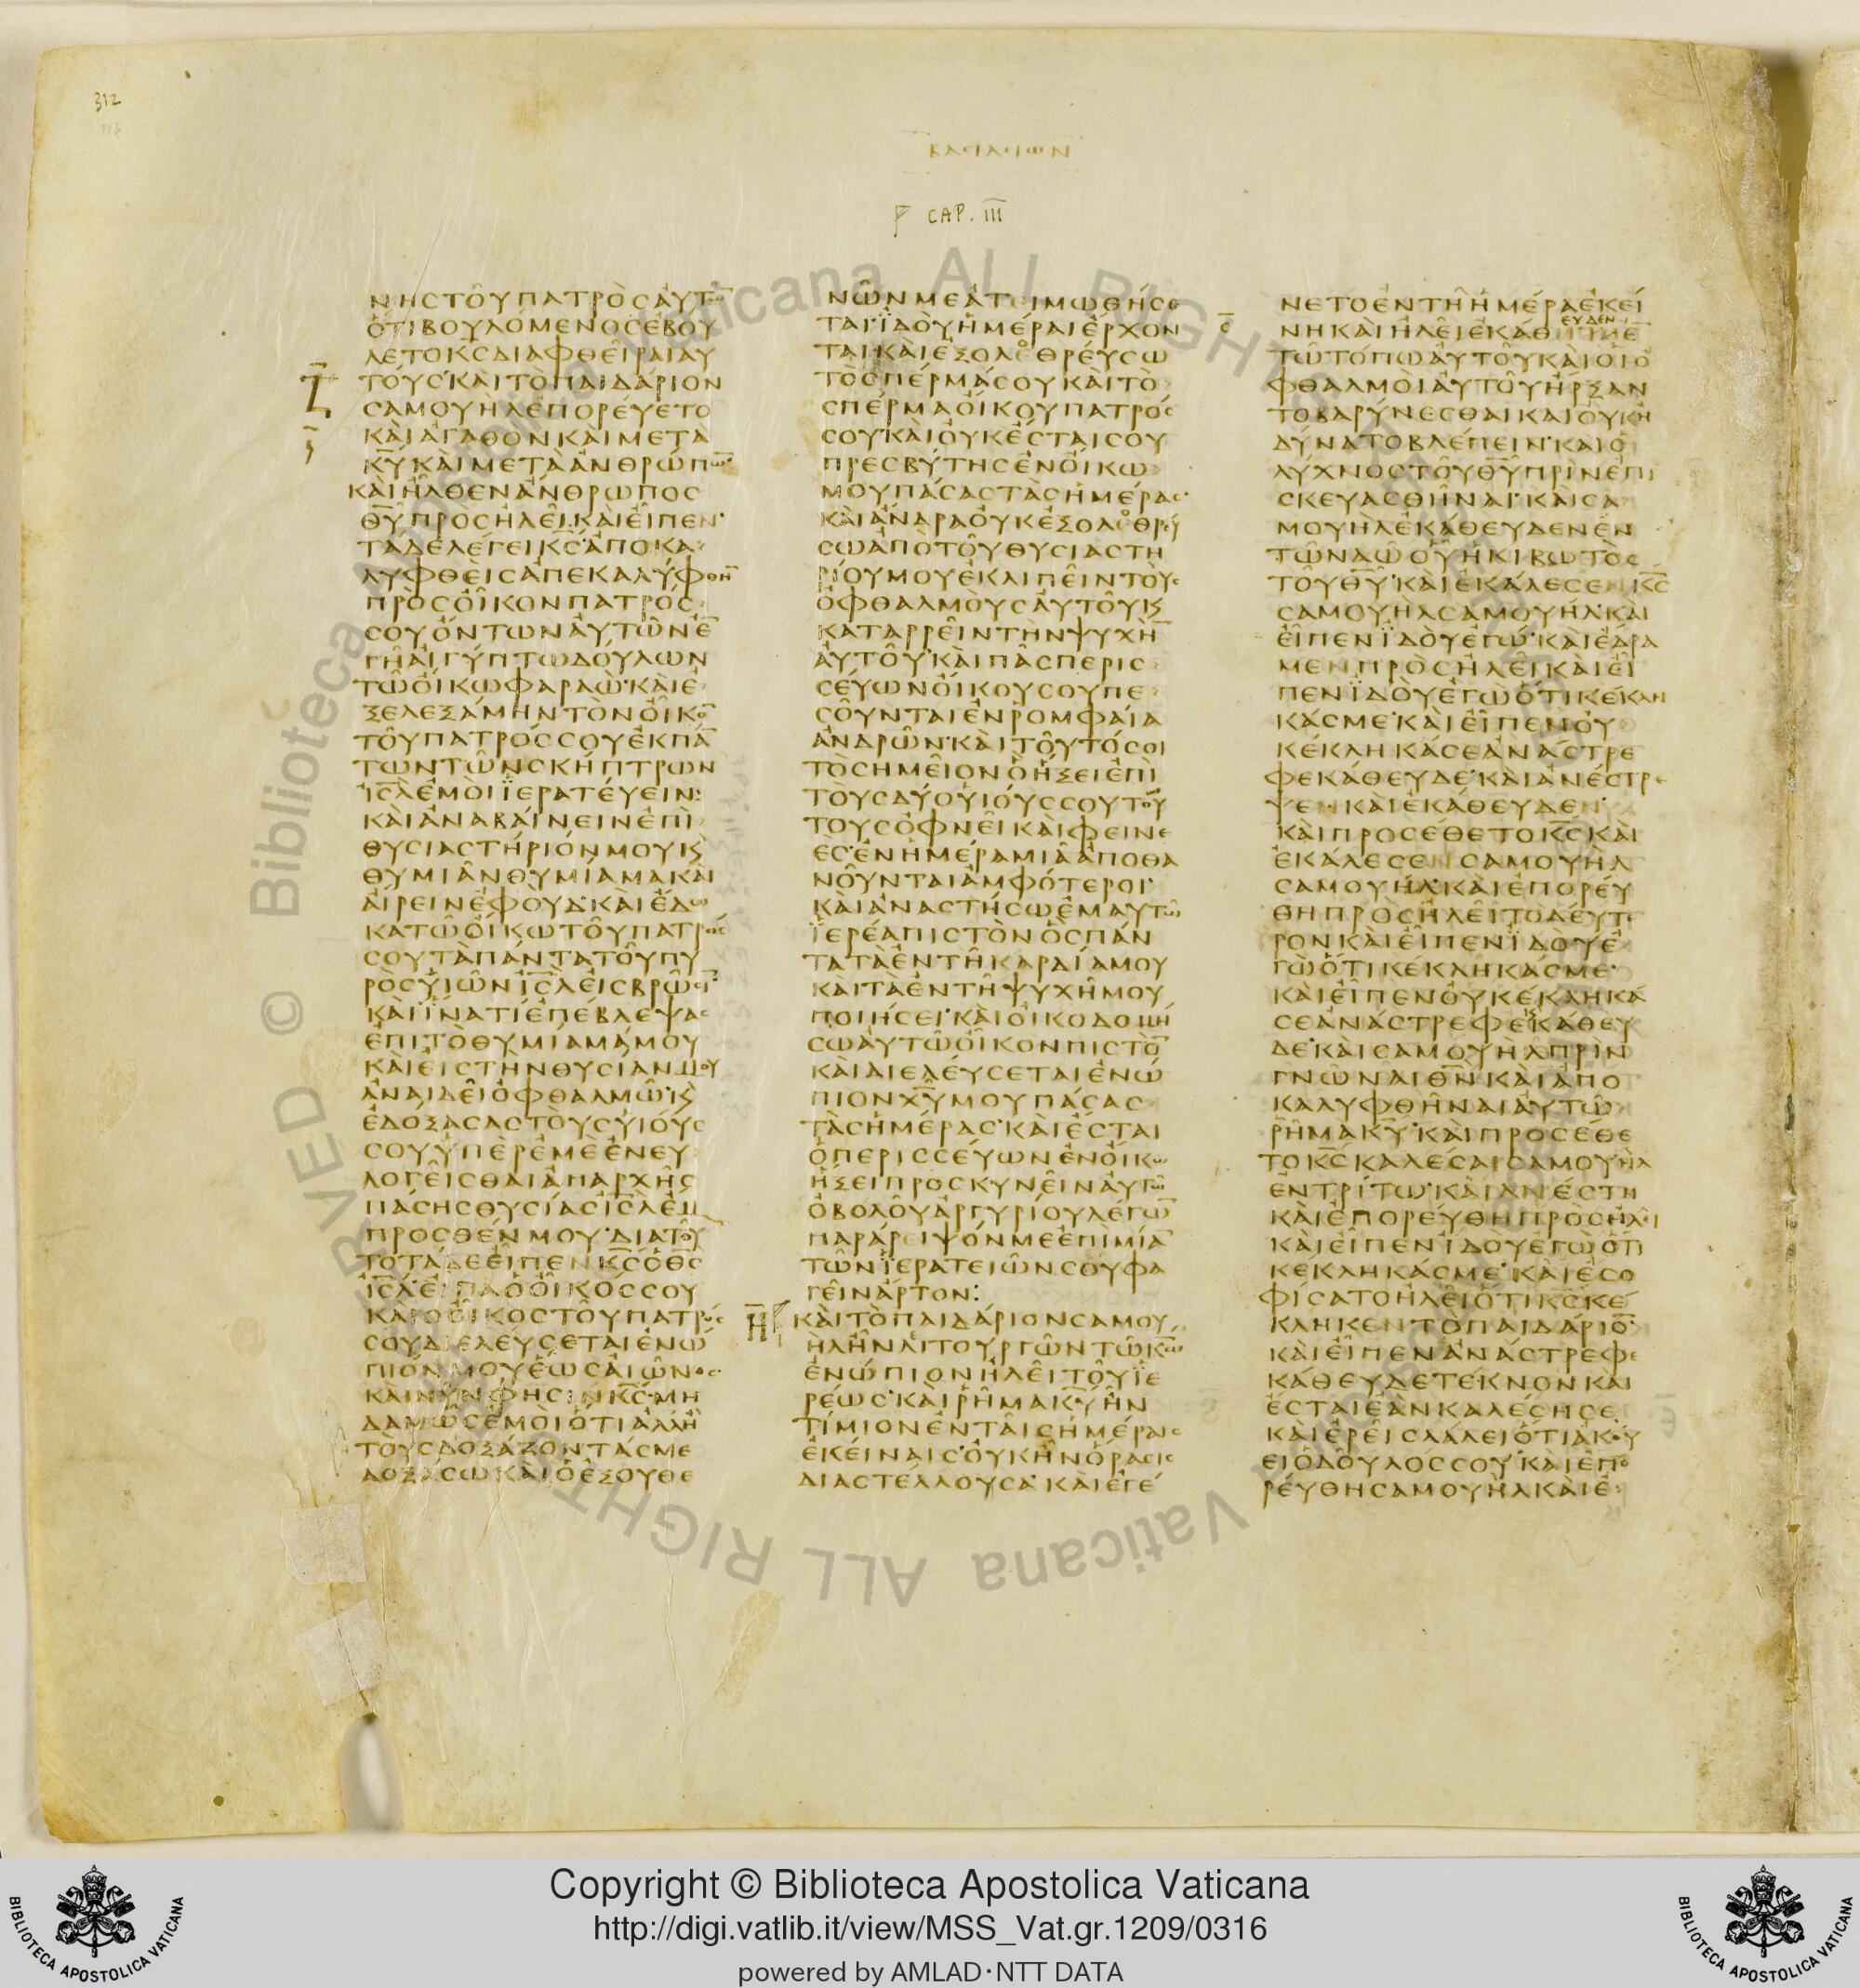 312
ΒΑΣΙΛΕΙΩΝ
CAP. III
ΝΗϹΤΟΥΠΑΤΡΟϹΑΥΤΩ̅
ΟΤΙΒΟΥΛΟΜΕΝΟϹΕΒΟΥ
ΛΕΤΟΚ̅Ϲ̅ΔΙΑΦΘΕΙΡΑΙΑΥ
ΤΟΥϹ·ΚΑΙΤΟΠΑΙΔΑΡΙΟΝ
ϹΑΜΟΥΗΛΕΠΟΡΕΥΕΤΟ
ΚΑΙΑΓΑΘΟΝΚΑΙΜΕΤΑ
Κ̅Υ̅ΚΑΙΜΕΤΑΑΝΘΡΩΠΩ̅
ΚΑΙΗΛΘΕΝΑΝΘΡΩΠΟϹ
Θ̅Υ̅ΠΡΟϹΗΛΕΙΚΑΙΕΙΠΕΝ·
ΤΑΔΕΛΕΓΕΙΚ̅Ϲ̅·ΑΠΟΚΑ
ΛΥΦΘΕΙϹΑΠΕΚΑΛΥΦΘΗ̅
ΠΡΟϹΟΙΚΟΝΠΑΤΡΟϹ
ϹΟΥΟΝΤΩΝΑΥΤΩΝΕ̅
ΓΗΑΙΓΥΠΤΩΔΟΥΛΩΝ
ΤΩΟΙΚΩΦΑΡΑΩ·ΚΑΙΕ
ΞΕΛΕΞΑΜΗΝΤΟΝΟΙΚΟ̅
ΤΟΥΠΑΤΡΟϹϹΟΥΕΚΠΑ̅
ΤΩΝΤΩΝϹΚΗΠΤΡΩΝ
Ι̅Ϲ̅Λ̅ΕΜΟΙΪΕΡΑΤΕΥΕΙΝ:
ΚΑΙΑΝΑΒΑΙΝΕΙΝΕΠΙ
ΘΥϹΙΑϹΤΗΡΙΟΝΜΟΥΚΑΙ
ΘΥΜΙΑΝΘΥΜΙΑΜΑΚΑΙ
ΑΙΡΕΙΝΕΦΟΥΔ·ΚΑΙΕΔΩ
ΚΑΤΩΟΙΚΩΤΟΥΠΑΤΡΟϹ
ϹΟΥΤΑΠΑΝΤΑΤΟΥΠΥ
ΡΟϹΥΙΩΝΙ̅Ϲ̅Λ̅ΕΙϹΒΡΩϹΙ̅
ΚΑΙΪΝΑΤΙΕΠΕΒΛΕΨΑϹ
ΕΠΙΤΟΘΥΜΙΑΜΑΜΟΥ
ΚΑΙΕΙϹΤΗΝΘΥϹΙΑΝΜΟΥ
ΑΝΑΙΔΕΙΟΦΘΑΛΜΩ·ΚΑΙ
ΕΔΟΞΑϹΑϹΤΟΥϹΥΙΟΥϹ
ϹΟΥΥΠΕΡΕΜΕΕΝΕΥ
ΛΟΓΕΙϹΘΑΙΑΠΑΡΧΗϹ
ΠΑϹΗϹΘΥϹΙΑϹΙ̅Ϲ̅Λ̅ΕΜ
ΠΡΟϹΘΕΝΜΟΥ·ΔΙΑΤΟΥ
ΤΟΤΑΔΕΕΙΠΕΝΚ̅Ϲ̅ΟΘ̅Ϲ̅
Ι̅Ϲ̅Λ̅·ΕΙΠΑΟΟΙΚΟϹϹΟΥ
ΚΑΙΟΟΙΚΟϹΤΟΥΠΑΤΡΟϹ
ϹΟΥΔΙΕΛΕΥϹΕΤΑΙΕΝΩ
ΠΙΟΝΜΟΥΕΩϹΑΙΩΝΟϹ
ΚΑΙΝΥΝΦΗϹΙΝΚ̅Ϲ̅·ΜΗ
ΔΑΜΩϹΕΜΟΙΟΤΙΑΛΛΗ
ΤΟΥϹΔΟΞΑΖΟΝΤΑϹΜΕ
ΔΟΞΑϹΩΚΑΙΟΕΞΟΥΘΕ
ΝΩΝΜΕΑΤΕΙΜΩΘΗϹΕ
ΤΑΙ·ΪΔΟΥΗΜΕΡΑΙΕΡΧΟΝ
ΤΑΙΚΑΙΕΞΟΛΕΘΡΕΥϹΩ
ΤΟϹΠΕΡΜΑϹΟΥΚΑΙΤΟ
ϹΠΕΡΜΑΟΙΚΟΥΠΑΤΡΟϹ
ϹΟΥ·ΚΑΙΟΥΚΕϹΤΑΙϹΟΥ
ΠΡΕϹΒΥΤΗϹΕΝΟΙΚΩ
ΜΟΥΠΑϹΑϹΤΑϹΗΜΕΡΑϹ·
ΚΑΙΑΝΔΡΑΟΥΚΕΞΟΛΕΘΡΕΥ
ϹΩΑΠΟΤΟΥΘΥϹΙΑϹΤΗ
ΡΙΟΥΜΟΥΕΚΛΙΠΕΙΝΤΟΥϹ
ΟΦΘΑΛΜΟΥϹΑΥΤΟΥΚΑΙ
ΚΑΤΑΡΡΕΙΝΤΗΝΨΥΧΗ̅
ΑΥΤΟΥ·ΚΑΙΠΑϹΠΕΡΙϹ
ϹΕΥΩΝΟΙΚΟΥϹΟΥΠΕ
ϹΟΥΝΤΑΙΕΝΡΟΜΦΑΙΑ
ΑΝΔΡΩΝ·ΚΑΙΤΟΥΤΟϹΟΙ
ΤΟϹΗΜΕΙΟΝΟΗΞΕΙΕΠΙ
ΤΟΥϹΔΥΟΥΙΟΥϹϹΟΥΤΟΥ
ΤΟΥϹΟΦΝΕΙΚΑΙΦΕΙΝΕ
ΕϹ·ΕΝΗΜΕΡΑΜΙΑΑΠΟΘΑ
ΝΟΥΝΤΑΙΑΜΦΟΤΕΡΟΙ·
ΚΑΙΑΝΑϹΤΗϹΩΕΜΑΥΤΩ
ΪΕΡΕΑΠΙϹΤΟΝΟϹΠΑΝ
ΤΑΤΑΕΝΤΗΚΑΡΔΙΑΜΟΥ
ΚΑΙΤΑΕΝΤΗΨΥΧΗΜΟΥ
ΠΟΙΗϹΕΙ·ΚΑΙΟΙΚΟΔΟΜΗ
ϹΩΑΥΤΩΟΙΚΟΝΠΙϹΤΟ̅
ΚΑΙΔΙΕΛΕΥϹΕΤΑΙΕΝΩ
ΠΙΟΝΧ̅Υ̅ΜΟΥΠΑϹΑϹ
ΤΑϹΗΜΕΡΑϹ·ΚΑΙΕϹΤΑΙ
ΟΠΕΡΙϹϹΕΥΩΝΕΝΟΙΚΩ
ΗΞΕΙΠΡΟϹΚΥΝΕΙΝΑΥΤΩ
ΟΒΟΛΟΥΑΡΓΥΡΙΟΥΛΕΓΩ̅
ΠΑΡΑΡΕΙΨΟΝΜΕΕΠΙΜΙΑ̅
ΤΩΝΪΕΡΑΤΕΙΩΝϹΟΥΦΑ
ΓΕΙΝΑΡΤΟΝ:
ΚΑΙΤΟΠΑΙΔΑΡΙΟΝϹΑΜΟΥ
ΗΛΗΝΛΙΤΟΥΡΓΩΝΤΩΚ̅Ω̅
ΕΝΩΠΙΟΝΗΛΕΙΤΟΥΪΕ
ΡΕΩϹ·ΚΑΙΡΗΜΑΚ̅Υ̅ΗΝ
ΤΙΜΙΟΝΕΝΤΑΙϹΗΜΕΡΑΙϹ
ΕΚΕΙΝΑΙϹ·ΟΥΚΗΝΟΡΑϹΙϹ
ΔΙΑϹΤΕΛΛΟΥϹΑ·ΚΑΙΕΓΕ
ΝΕΤΟΕΝΤΗΗΜΕΡΑΕΚΕΙ
ΝΗΚΑΙΗΛΕΙΕΚΑΘΕΥΔΕΝΕ̅
ΤΩΤΟΠΩΑΥΤΟΥΚΑΙΟΙΟ
ΦΘΑΛΜΟΙΑΥΤΟΥΗΡΞΑΝ
ΤΟΒΑΡΥΝΕϹΘΑΙΚΑΙΟΥΚΗ
ΔΥΝΑΤΟΒΛΕΠΕΙΝ·ΚΑΙΟ
ΛΥΧΝΟϹΤΟΥΘ̅Υ̅ΠΡΙΝΕΠΙ
ϹΚΕΥΑϹΘΗΝΑΙ·ΚΑΙϹΑ
ΜΟΥΗΛΕΚΑΘΕΥΔΕΝΕΝ
ΤΩΝΑΩΟΥΗΚΙΒΩΤΟϹ
ΤΟΥΘ̅Υ̅·ΚΑΙΕΚΑΛΕϹΕΝΚ̅Ϲ̅
ϹΑΜΟΥΗΛϹΑΜΟΥΗΛ·ΚΑΙ
ΕΙΠΕΝΪΔΟΥΕΓΩ·ΚΑΙΕΔΡΑ
ΜΕΝΠΡΟϹΗΛΕΙΚΑΙΕΙ
ΠΕΝΪΔΟΥΕΓΩΟΤΙΚΕΚΛΗ
ΚΑϹΜΕ·ΚΑΙΕΙΠΕΝΟΥ
ΚΕΚΛΗΚΑϹΕΑΝΑϹΤΡΕ
ΦΕΚΑΘΕΥΔΕ·ΚΑΙΑΝΕϹΤΡΕ
ΨΕΝΚΑΙΕΚΑΘΕΥΔΕΝ·
ΚΑΙΠΡΟϹΕΘΕΤΟΚ̅Ϲ̅ΚΑΙ
ΕΚΑΛΕϹΕΝϹΑΜΟΥΗΛ
ϹΑΜΟΥΗΛ·ΚΑΙΕΠΟΡΕΥ
ΘΗΠΡΟϹΗΛΕΙΤΟΔΕΥΤΕ
ΡΟΝΚΑΙΕΙΠΕΝΪΔΟΥΕ
ΓΩΟΤΙΚΕΚΛΗΚΑϹΜΕ·
ΚΑΙΕΙΠΕΝΟΥΚΕΚΛΗΚΑ
ϹΕΑΝΑϹΤΡΕΦΕΚΑΘΕΥ
ΔΕ·ΚΑΙϹΑΜΟΥΗΛΠΡΙΝ
ΓΝΩΝΑΙΘ̅Ν̅ΚΑΙΑΠΟ
ΚΑΛΥΦΘΗΝΑΙΑΥΤΩ
ΡΗΜΑΚ̅Υ̅·ΚΑΙΠΡΟϹΕΘΕ
ΤΟΚ̅Ϲ̅ΚΑΛΕϹΑΙϹΑΜΟΥΗΛ
ΕΝΤΡΙΤΩ·ΚΑΙΑΝΕϹΤΗ
ΚΑΙΕΠΟΡΕΥΘΗΠΡΟϹΗΛΕΙ
ΚΑΙΕΙΠΕΝΪΔΟΥΕΓΩΟΤΙ
ΚΕΚΛΗΚΑϹΜΕ·ΚΑΙΕϹΟ
ΦΙϹΑΤΟΗΛΕΙΟΤΙΚ̅Ϲ̅ΚΕ
ΚΛΗΚΕΝΤΟΠΑΙΔΑΡΙΟ̅·
ΚΑΙΕΙΠΕΝΑΝΑϹΤΡΕΦΕ
ΚΑΘΕΥΔΕΤΕΚΝΟΝΚΑΙ
ΕϹΤΑΙΕΑΝΚΑΛΕϹΗϹΕ
ΚΑΙΕΡΕΙϹΛΑΛΕΙΟΤΙΑΚΟΥ
ΕΙΟΔΟΥΛΟϹϹΟΥ·ΚΑΙΕΠΟ
ΡΕΥΘΗϹΑΜΟΥΗΛΚΑΙΕ
Copyright © Biblioteca Apostolica Vaticana
http://digi.vatlib.it/view/MSS_Vat.gr.1209/0316
powered by AMLAD·NTT DATA
BIBLIOTECA APOSTOLICA VATICANA
BIBLIOTECA APOSTOLICA VATICANA